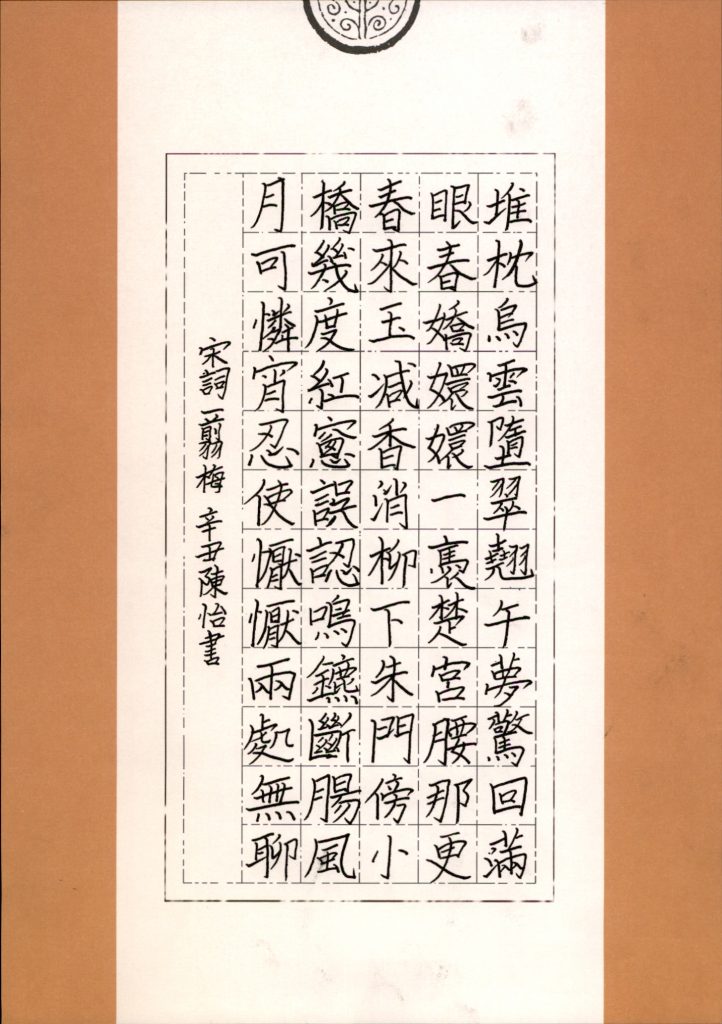 堆枕烏雲墮翠翹午夢驚回滿
眼春嬌嬛嬛一裊楚宮腰那更
春來玉减香消柳下朱門傍小
橋幾度紅窓誤認鳴鑣斷腸風
月可憐宵忍使懨懨兩處無聊
宋詞一翦梅 辛丑陳怡書